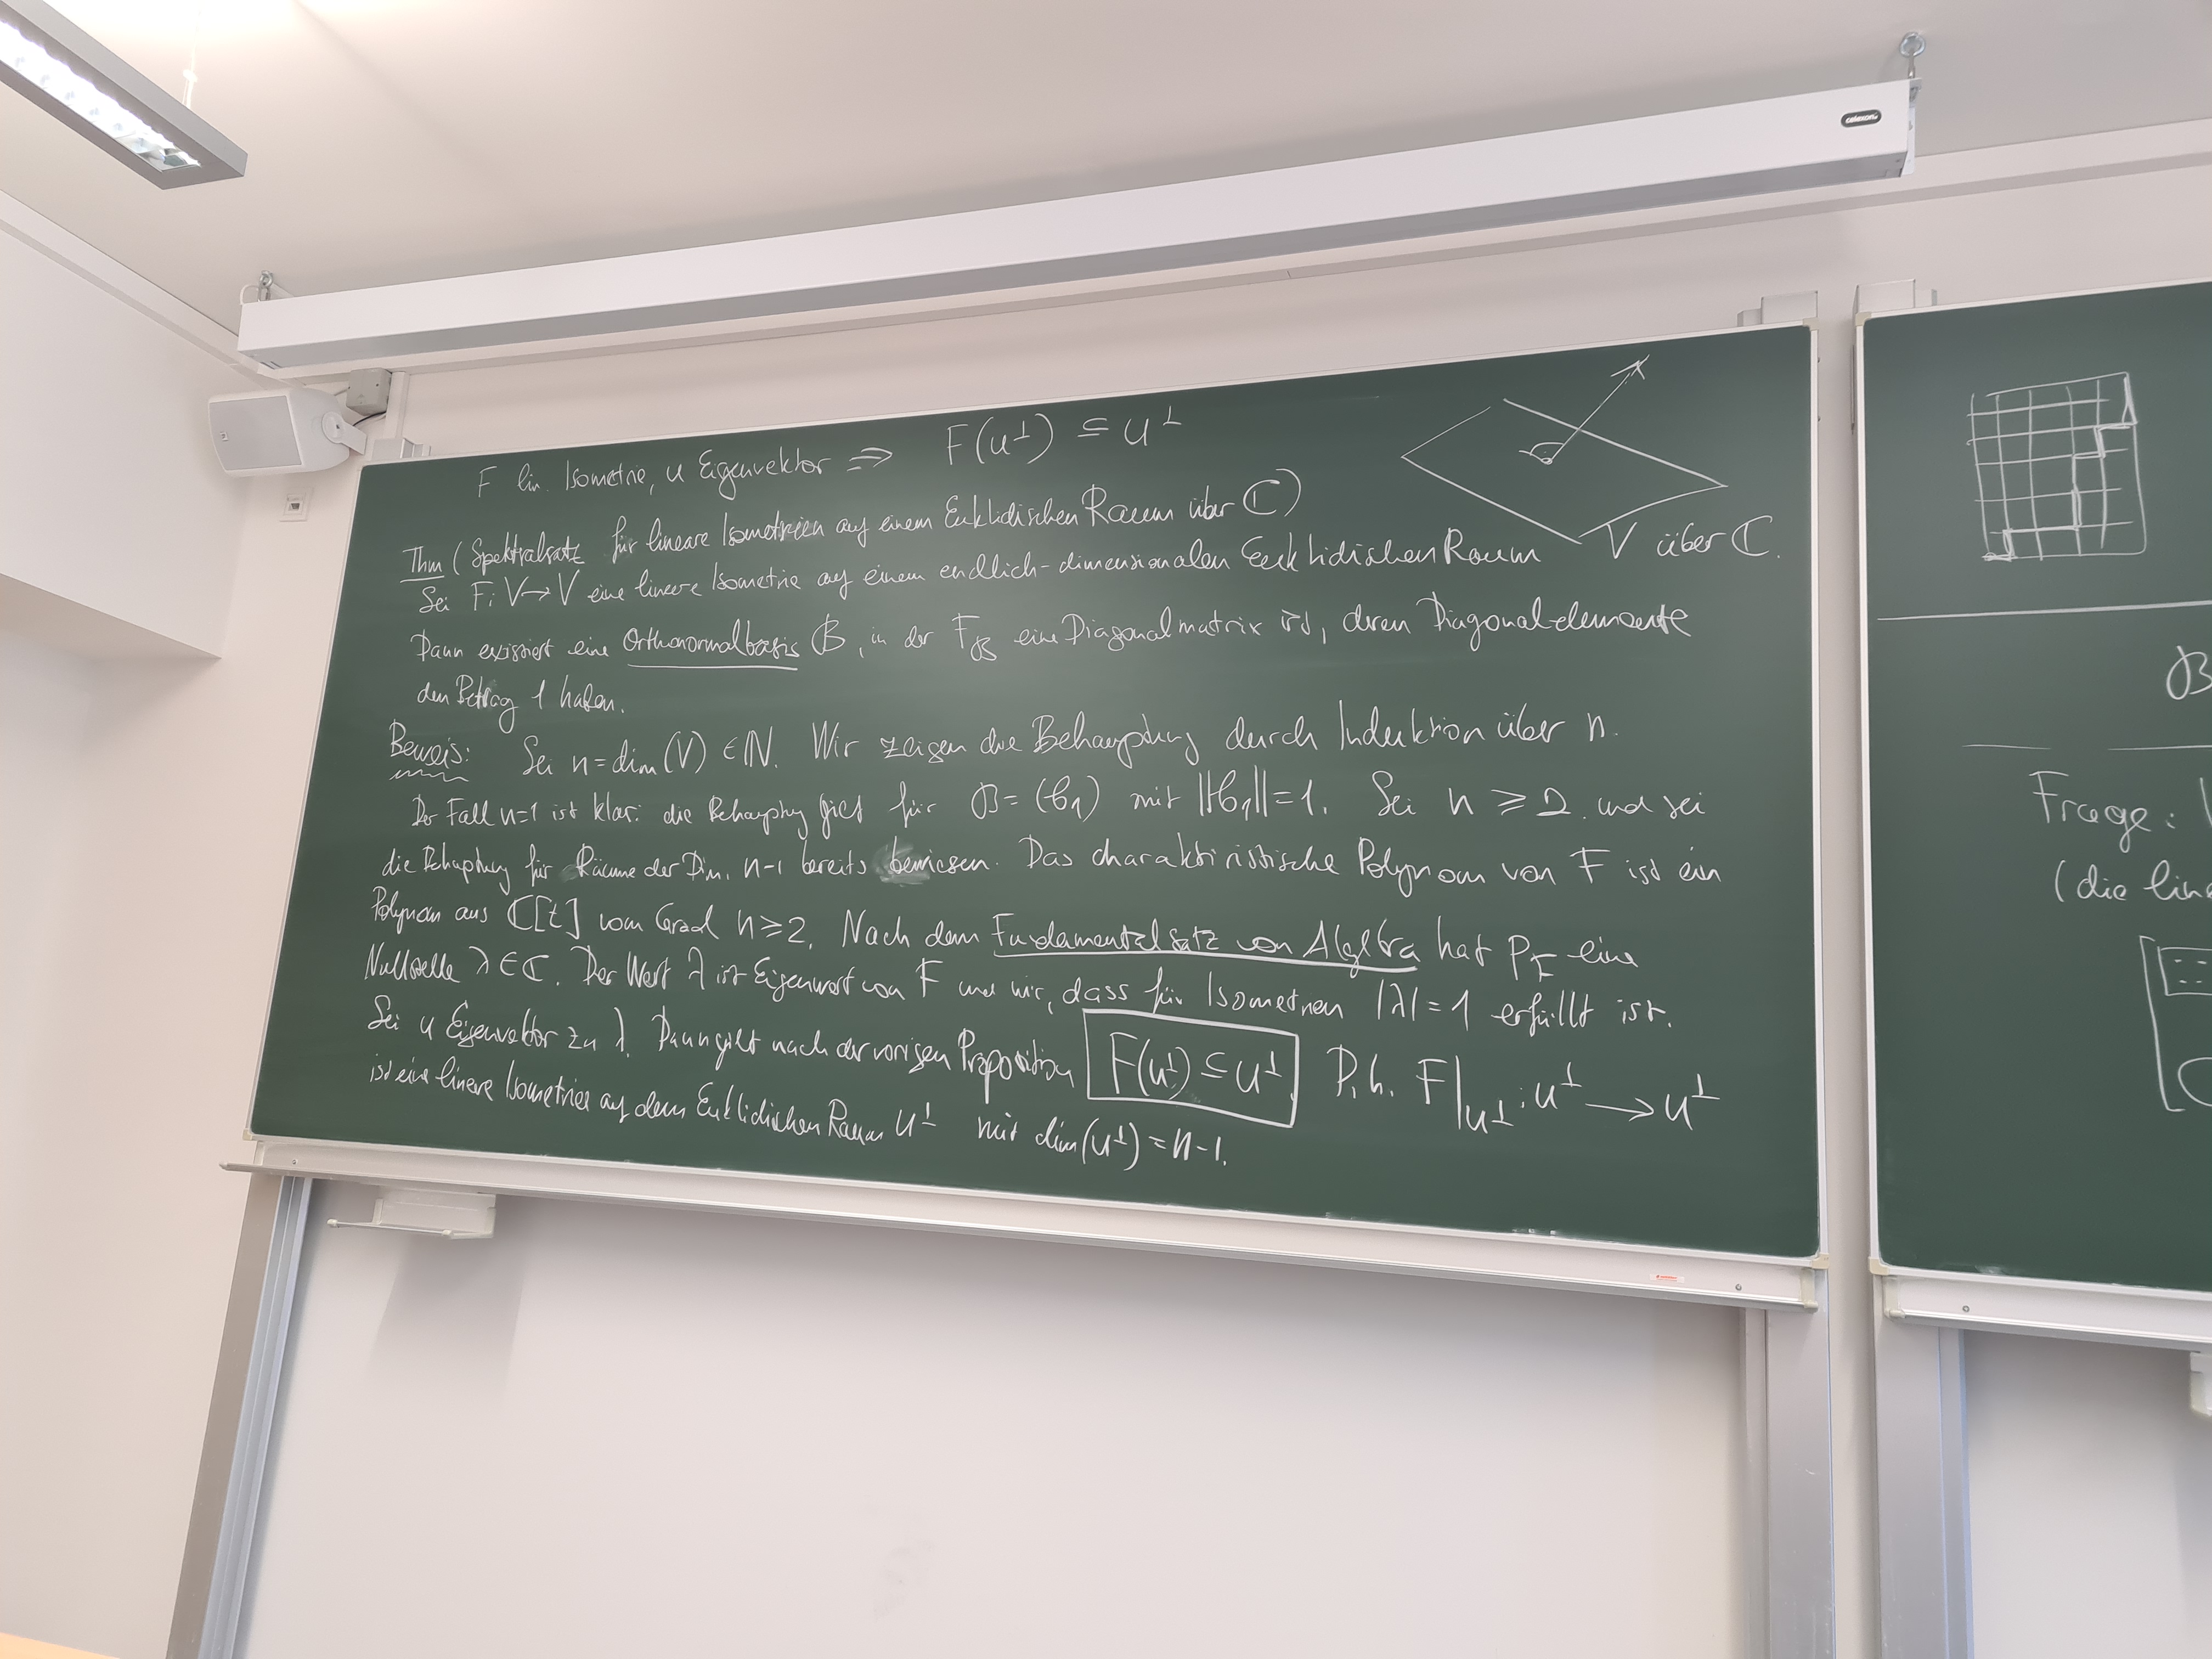 celexon
F lin. Isometrie, u Eigenvektor ⇒ F(u^⊥) ⊆ u^⊥
Thm (Spektralsatz für lineare Isometrien auf einem Euklidischen Raum über ℂ)
Sei F: V → V eine lineare Isometrie auf einem endlich-dimensionalen Euklidischen Raum V über ℂ.
Dann existiert eine Orthonormalbasis B, in der F_B eine Diagonalmatrix ist, deren Diagonalelemente
den Betrag 1 haben.
Beweis: Sei n = dim(V) ∈ ℕ. Wir zeigen die Behauptung durch Induktion über n.
Der Fall n=1 ist klar: die Behauptung gilt für B = (b_1) mit ||b_1|| = 1. Sei n ≥ 2 und sei
die Behauptung für Räume der Dim. n-1 bereits bewiesen. Das charaktiristische Polynom von F ist ein
Polynom aus ℂ[t] vom Grad n ≥ 2. Nach dem Fundamentalsatz von Algebra hat P_F eine
Nullstelle λ ∈ ℂ. Der Wert λ ist Eigenwert von F und wir, dass für Isometrien |λ| = 1 erfüllt ist.
Sei u Eigenvektor zu λ. Dann gilt nach der vorigen Proposition F(u^⊥) ⊆ u^⊥ D.h. F|_{u^⊥} : u^⊥ → u^⊥
ist eine lineare Isometrie auf dem Euklidischen Raum u^⊥ mit dim(u^⊥) = n-1.
B
Frage:
(die line